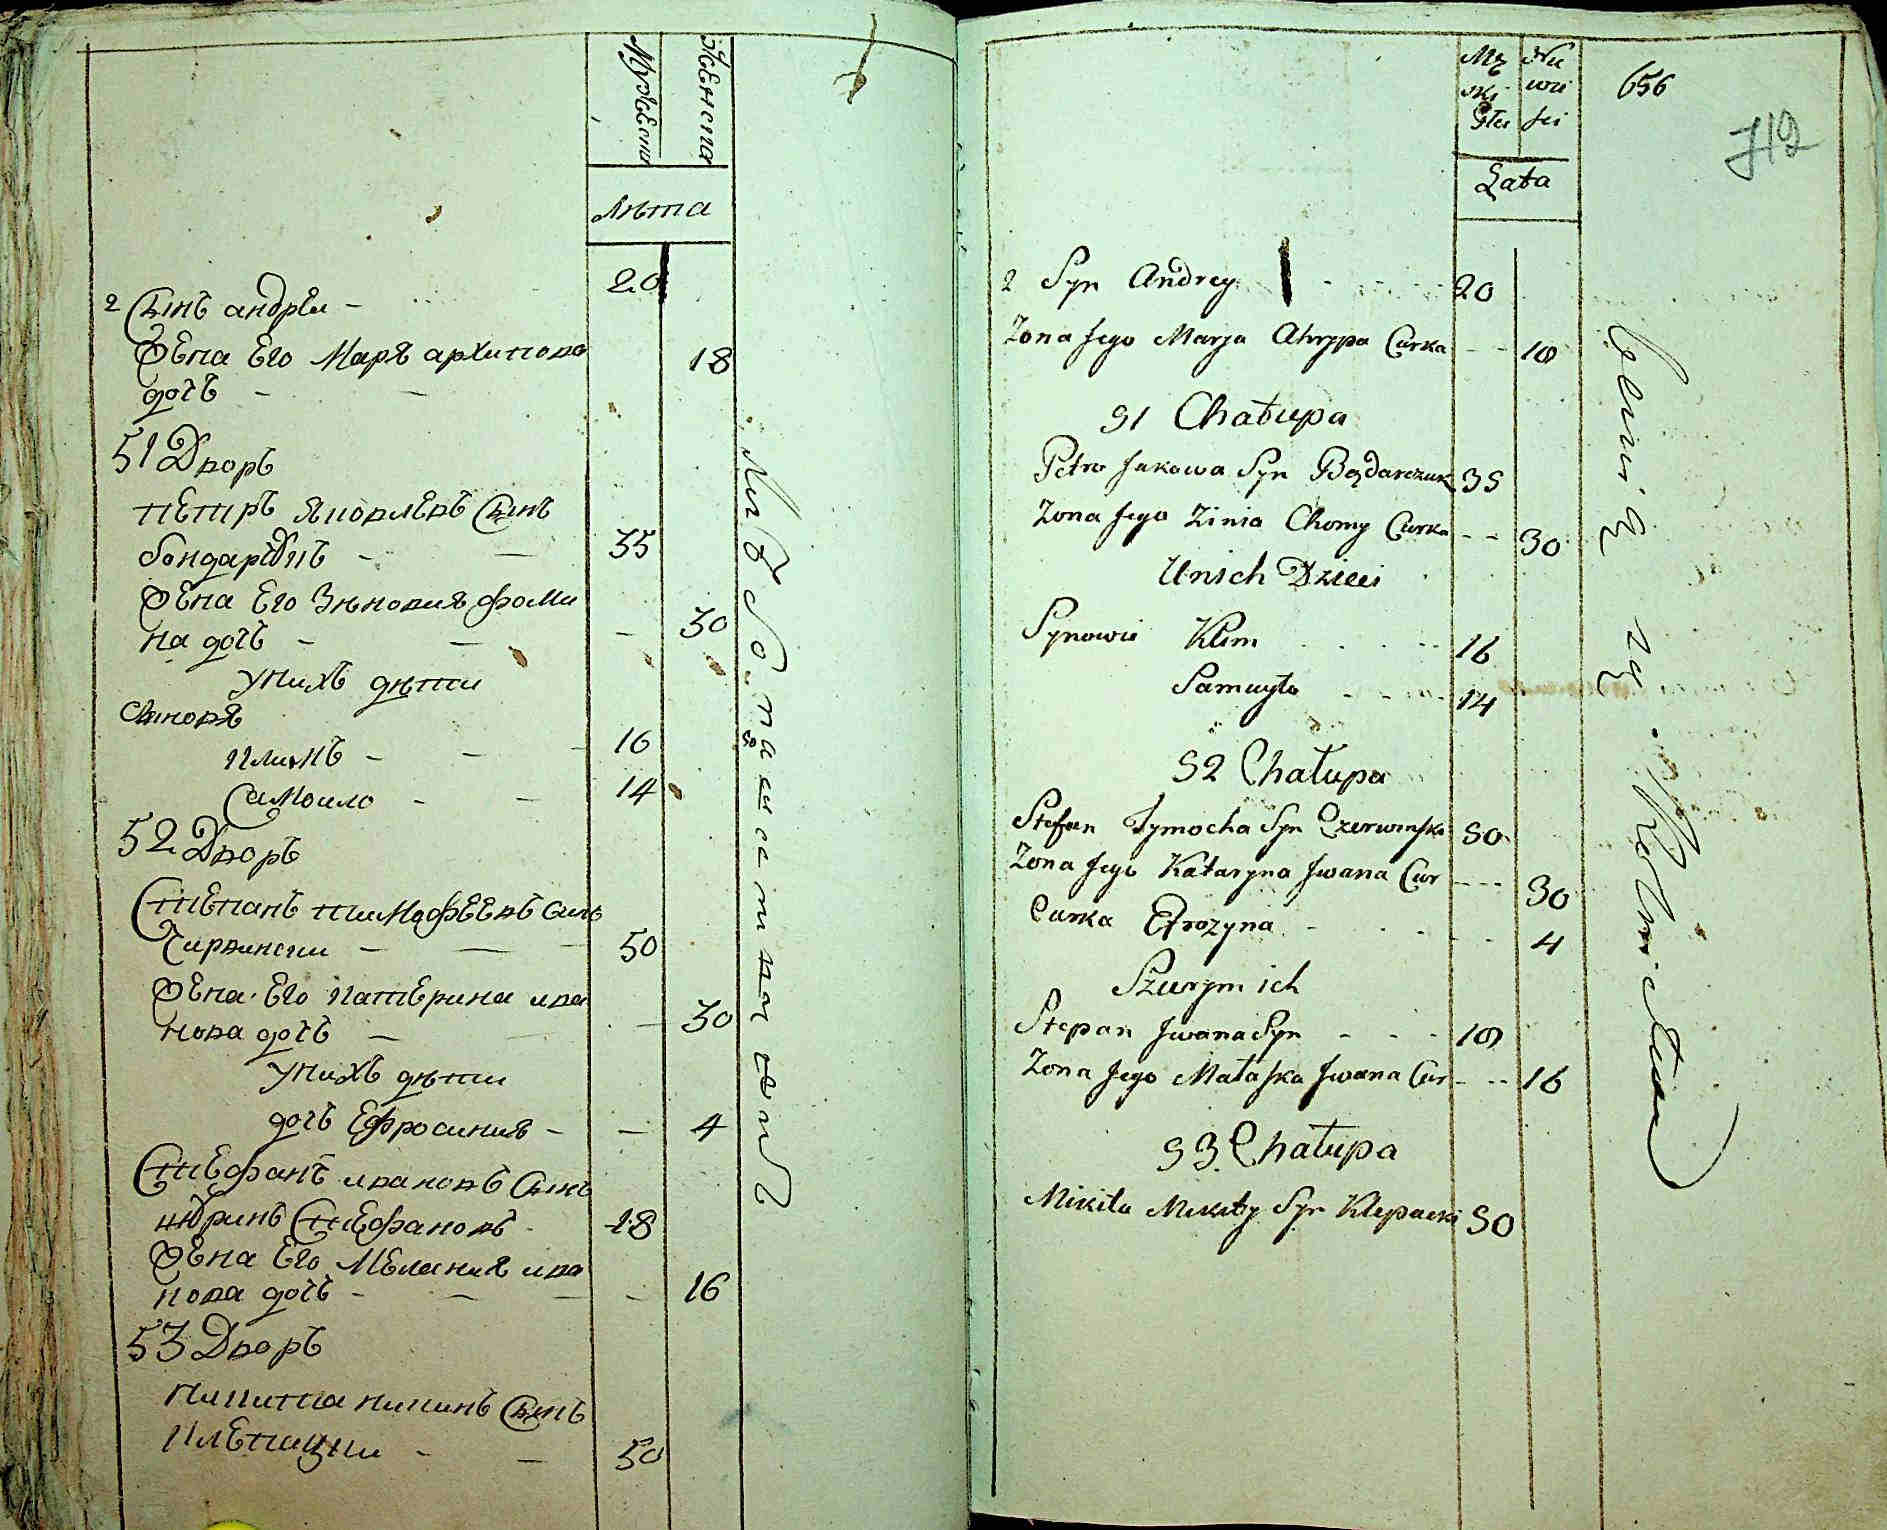 Мужеска
Женска
Лѣта
2 Сынъ андрѣи - 20
Жена Его Маря архипова 18
дочь -
51 Дворъ
пЕтръ Яковлевъ Сынъ
бондарчукъ - 35
Жена Его Зѣновия фоми
на дочь - 30
уникъ дѣти
Сыновя
климъ - 16
Самоило - 14
52 Дворъ
Степанъ тимофЕЕвъ Сынъ
Чирвински - 50
Жена Его катЕрина ива
нова дочь - 30
унихъ дѣти
дочь Ефросиния - 4
Стефанъ ивановъ Сынъ
Стефановъ 18
Жена Его Мелания ива
нова дочь - 16
53 Дворъ
никита никинъ Сынъ
клЕпацки - 50
Mę Nie
ski wie
Płci sci
656
712
Lata
2 Syn Andrey 20
Zona Jego Marya Ahrypa Curka 18
51 Chałupa
Petro Jakowa Syn Bądarczuk 35
Zona Jego Zinia Chomy Curka 30
Unich Dzieci
Synowie Klim 16
Samuyło 14
52 Chałupa
Stefan Tymocha Syn Czerwinski 50
Zona Jego Kataryna Jwana Cur 30
Curka Efrozyna 4
Szurym ich
Stepan Jwana Syn 18
Zona Jego Małaska Jwana Cur 16
53 Chałupa
Mikita Mikity Syn Klepacki 50